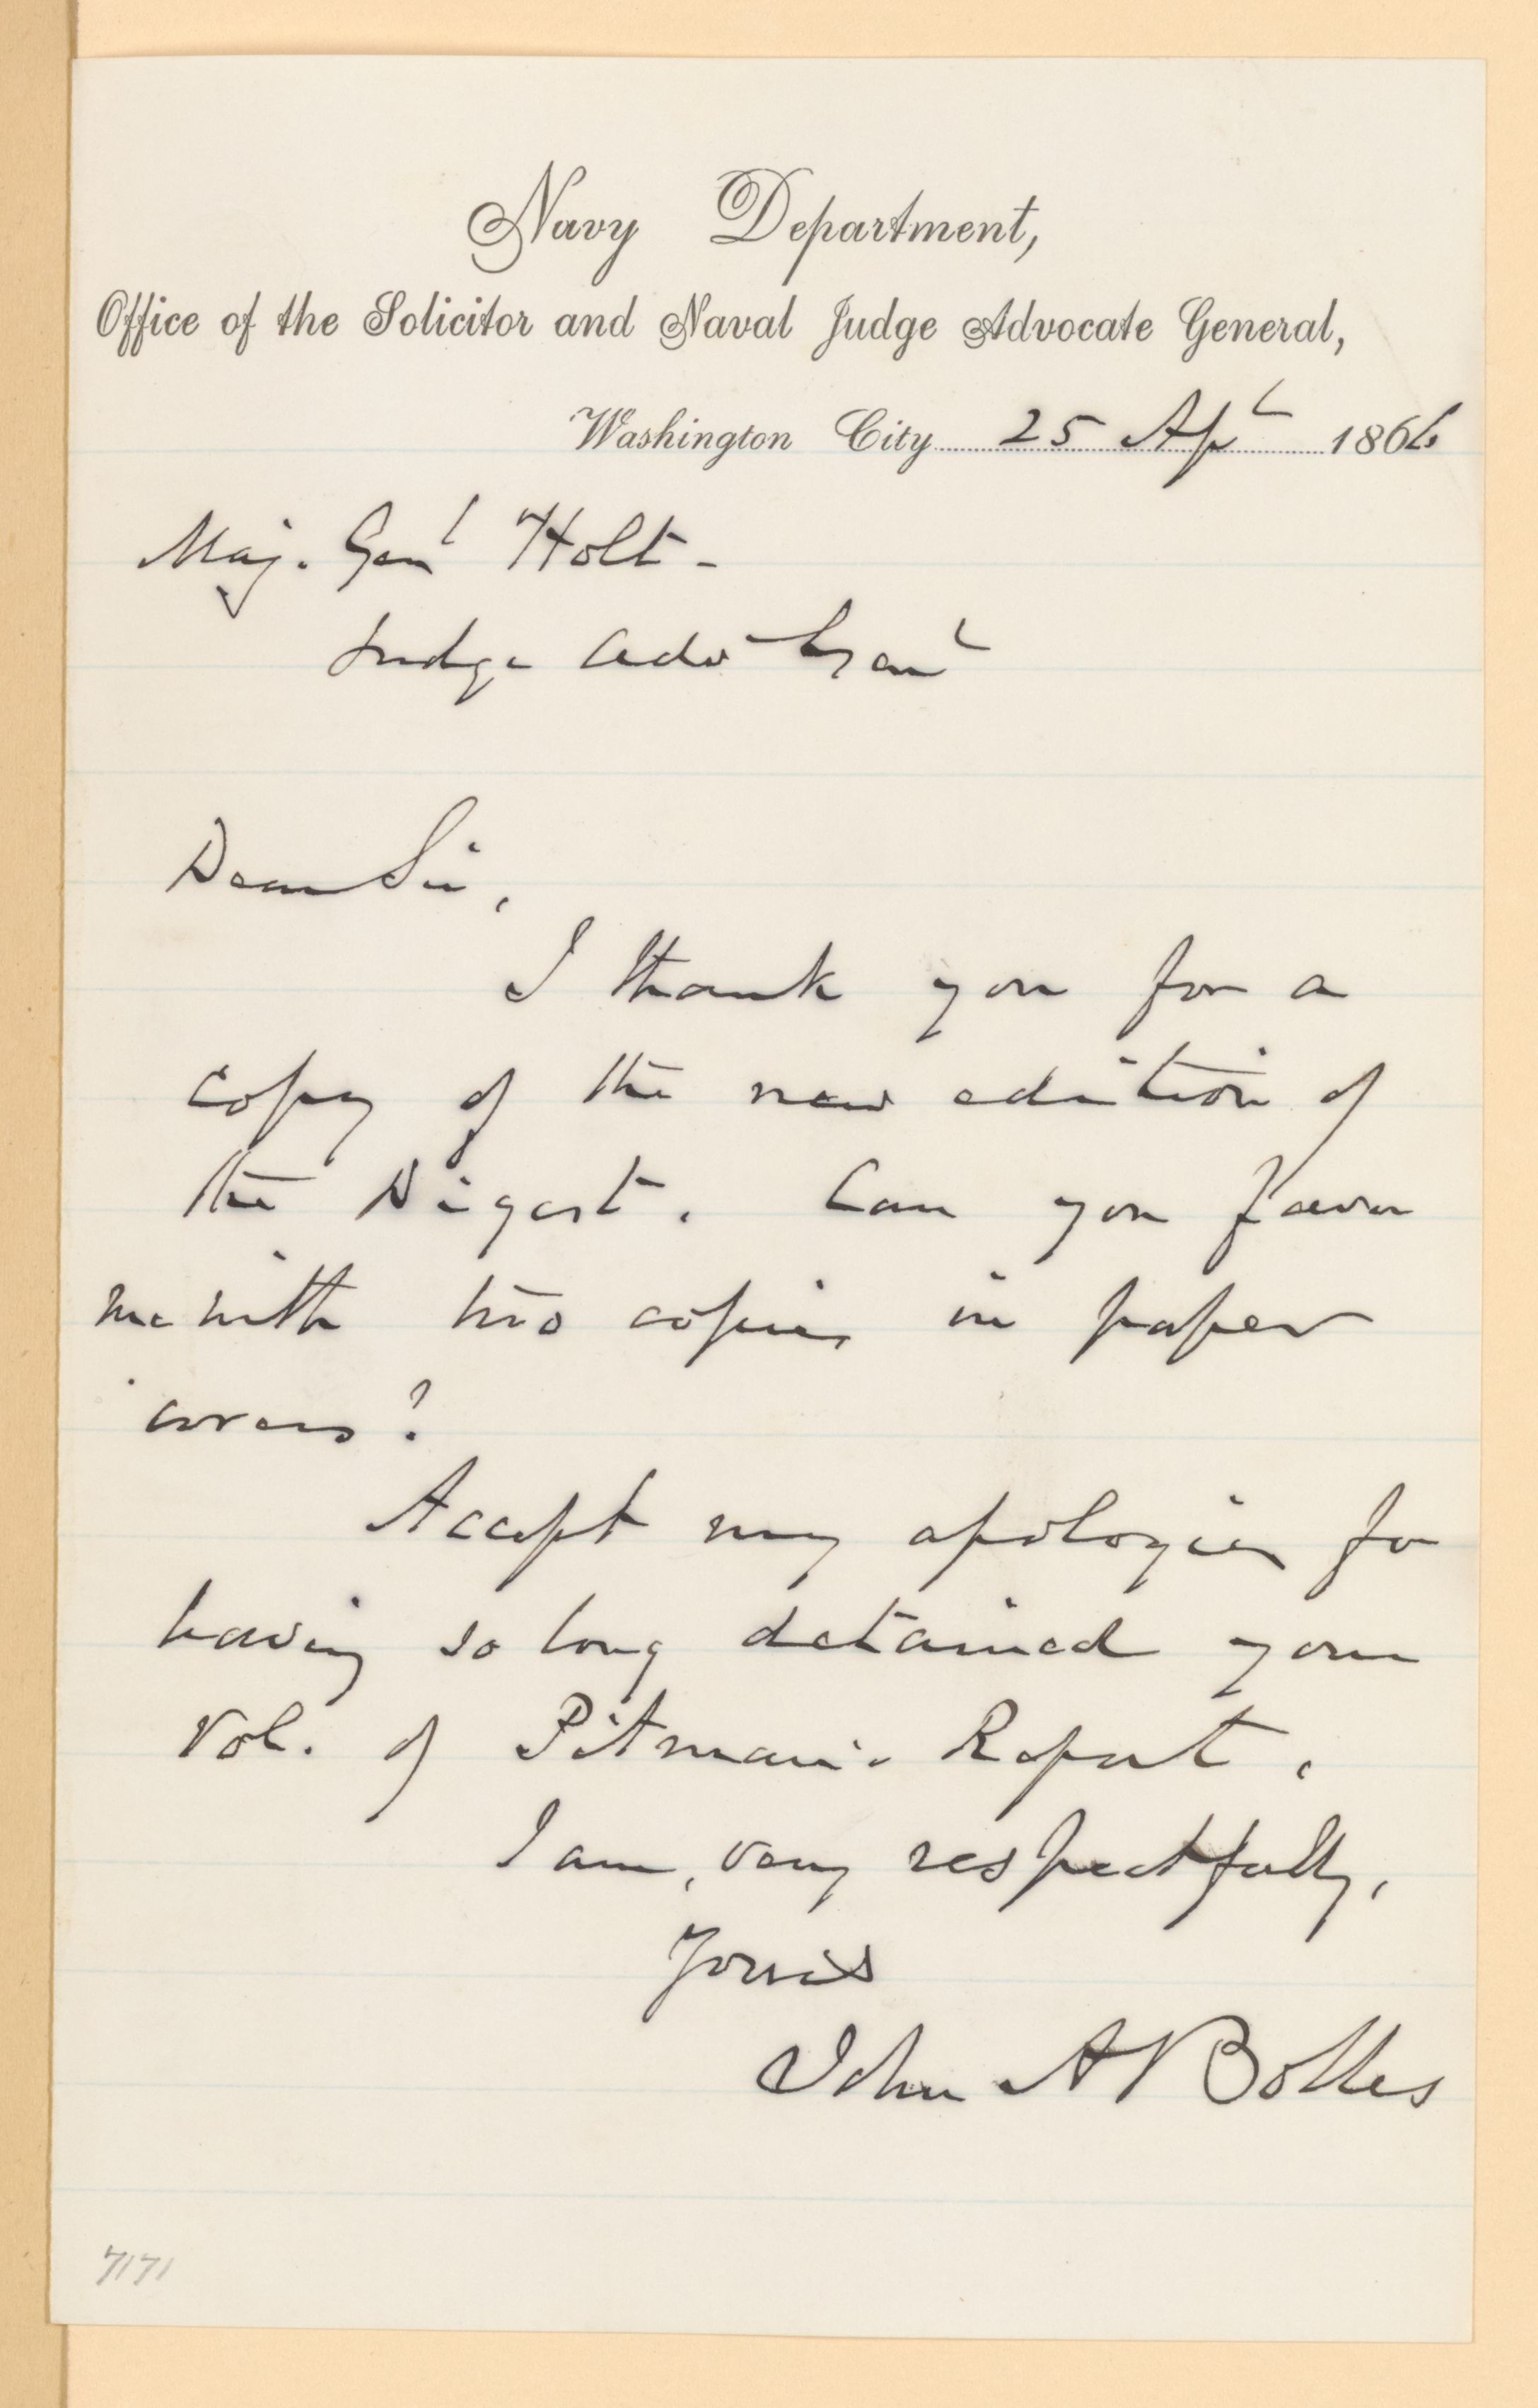 Navy Department,
Office of the Solicitor and Naval Judge Advocate General,
Washington City 25 Apl 1866
Maj. Genl Holt -
Judge Adv Genl
Dear Sir,
I thank you for a
copy of the new edition of
the Digest. Can you favor
me with two copies in paper
covers?
Accept my apologies for
having so long detained your
Vol. of Pitman's Report.
I am, very respectfully,
Yours
John A Bolles
7171